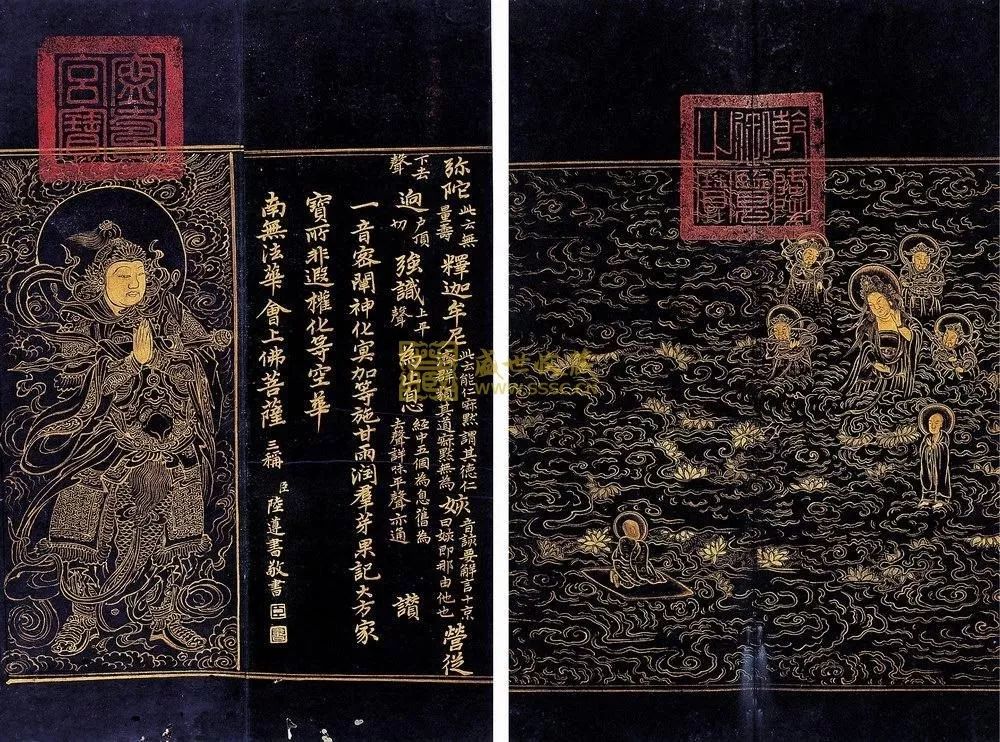 寧壽宮寶
弥陀 此云無量壽 釋迦牟尼 此云能仁寂默謂其德仁 其道寂默無為 姟 音該要解言十京曰姟即那由他也 營從
下去聲 逈 戶頂切 強識 上平聲 為止息 經中五個為息舊為去聲詳味平聲亦通 讚
一音容闡神化冥加等施甘雨润羣芽果記大方家
寶所非遐權化等空華
南無法華會上佛菩薩 三稱 臣陸遵書敬書
乾隆御覽之寶
盛世收藏
www.sssc.cn